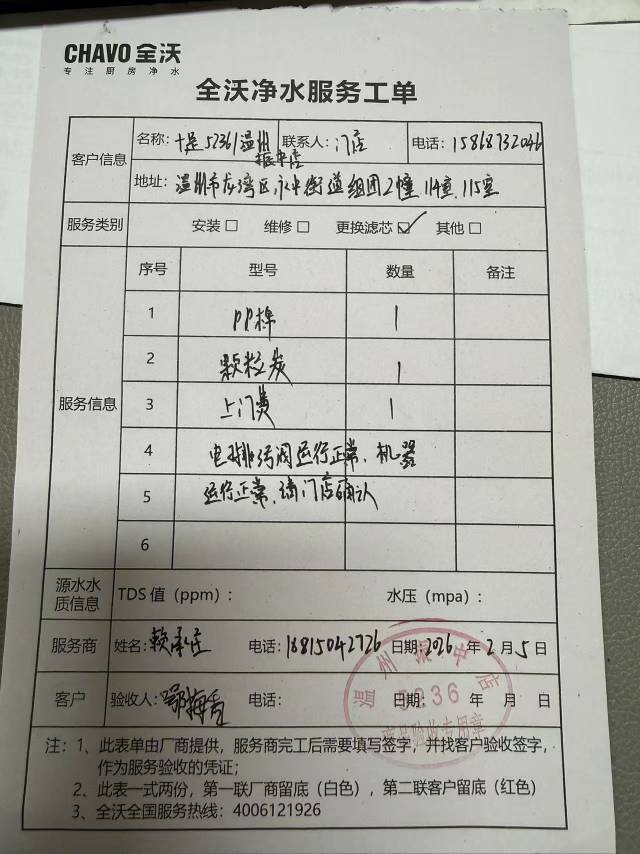 CHAVO 全沃
专注厨房净水
全沃净水服务工单
客户信息
名称：十足5236温州振中店 联系人：门店 电话：15868732046
地址：温州市龙湾区永中街道组团2幢114室、115室
服务类别 安装□ 维修□ 更换滤芯☑ 其他□
服务信息
序号 型号 数量 备注
1 PP棉 1
2 颗粒炭 1
3 上门费 1
4 电磁排污阀运行正常、机器
5 运行正常、请门店确认
6
源水水质信息 TDS 值（ppm）： 水压（mpa）：
服务商 姓名： 电话：18815042726 日期：2026年2月5日
客户 验收人： 电话： 日期： 年 月 日
温州振中店
5236
商品验收专用章
注：1、此表单由厂商提供，服务商完工后需要填写签字，并找客户验收签字，
作为服务验收的凭证；
2、此表一式两份，第一联厂商留底（白色），第二联客户留底（红色）
3、全沃全国服务热线：4006121926